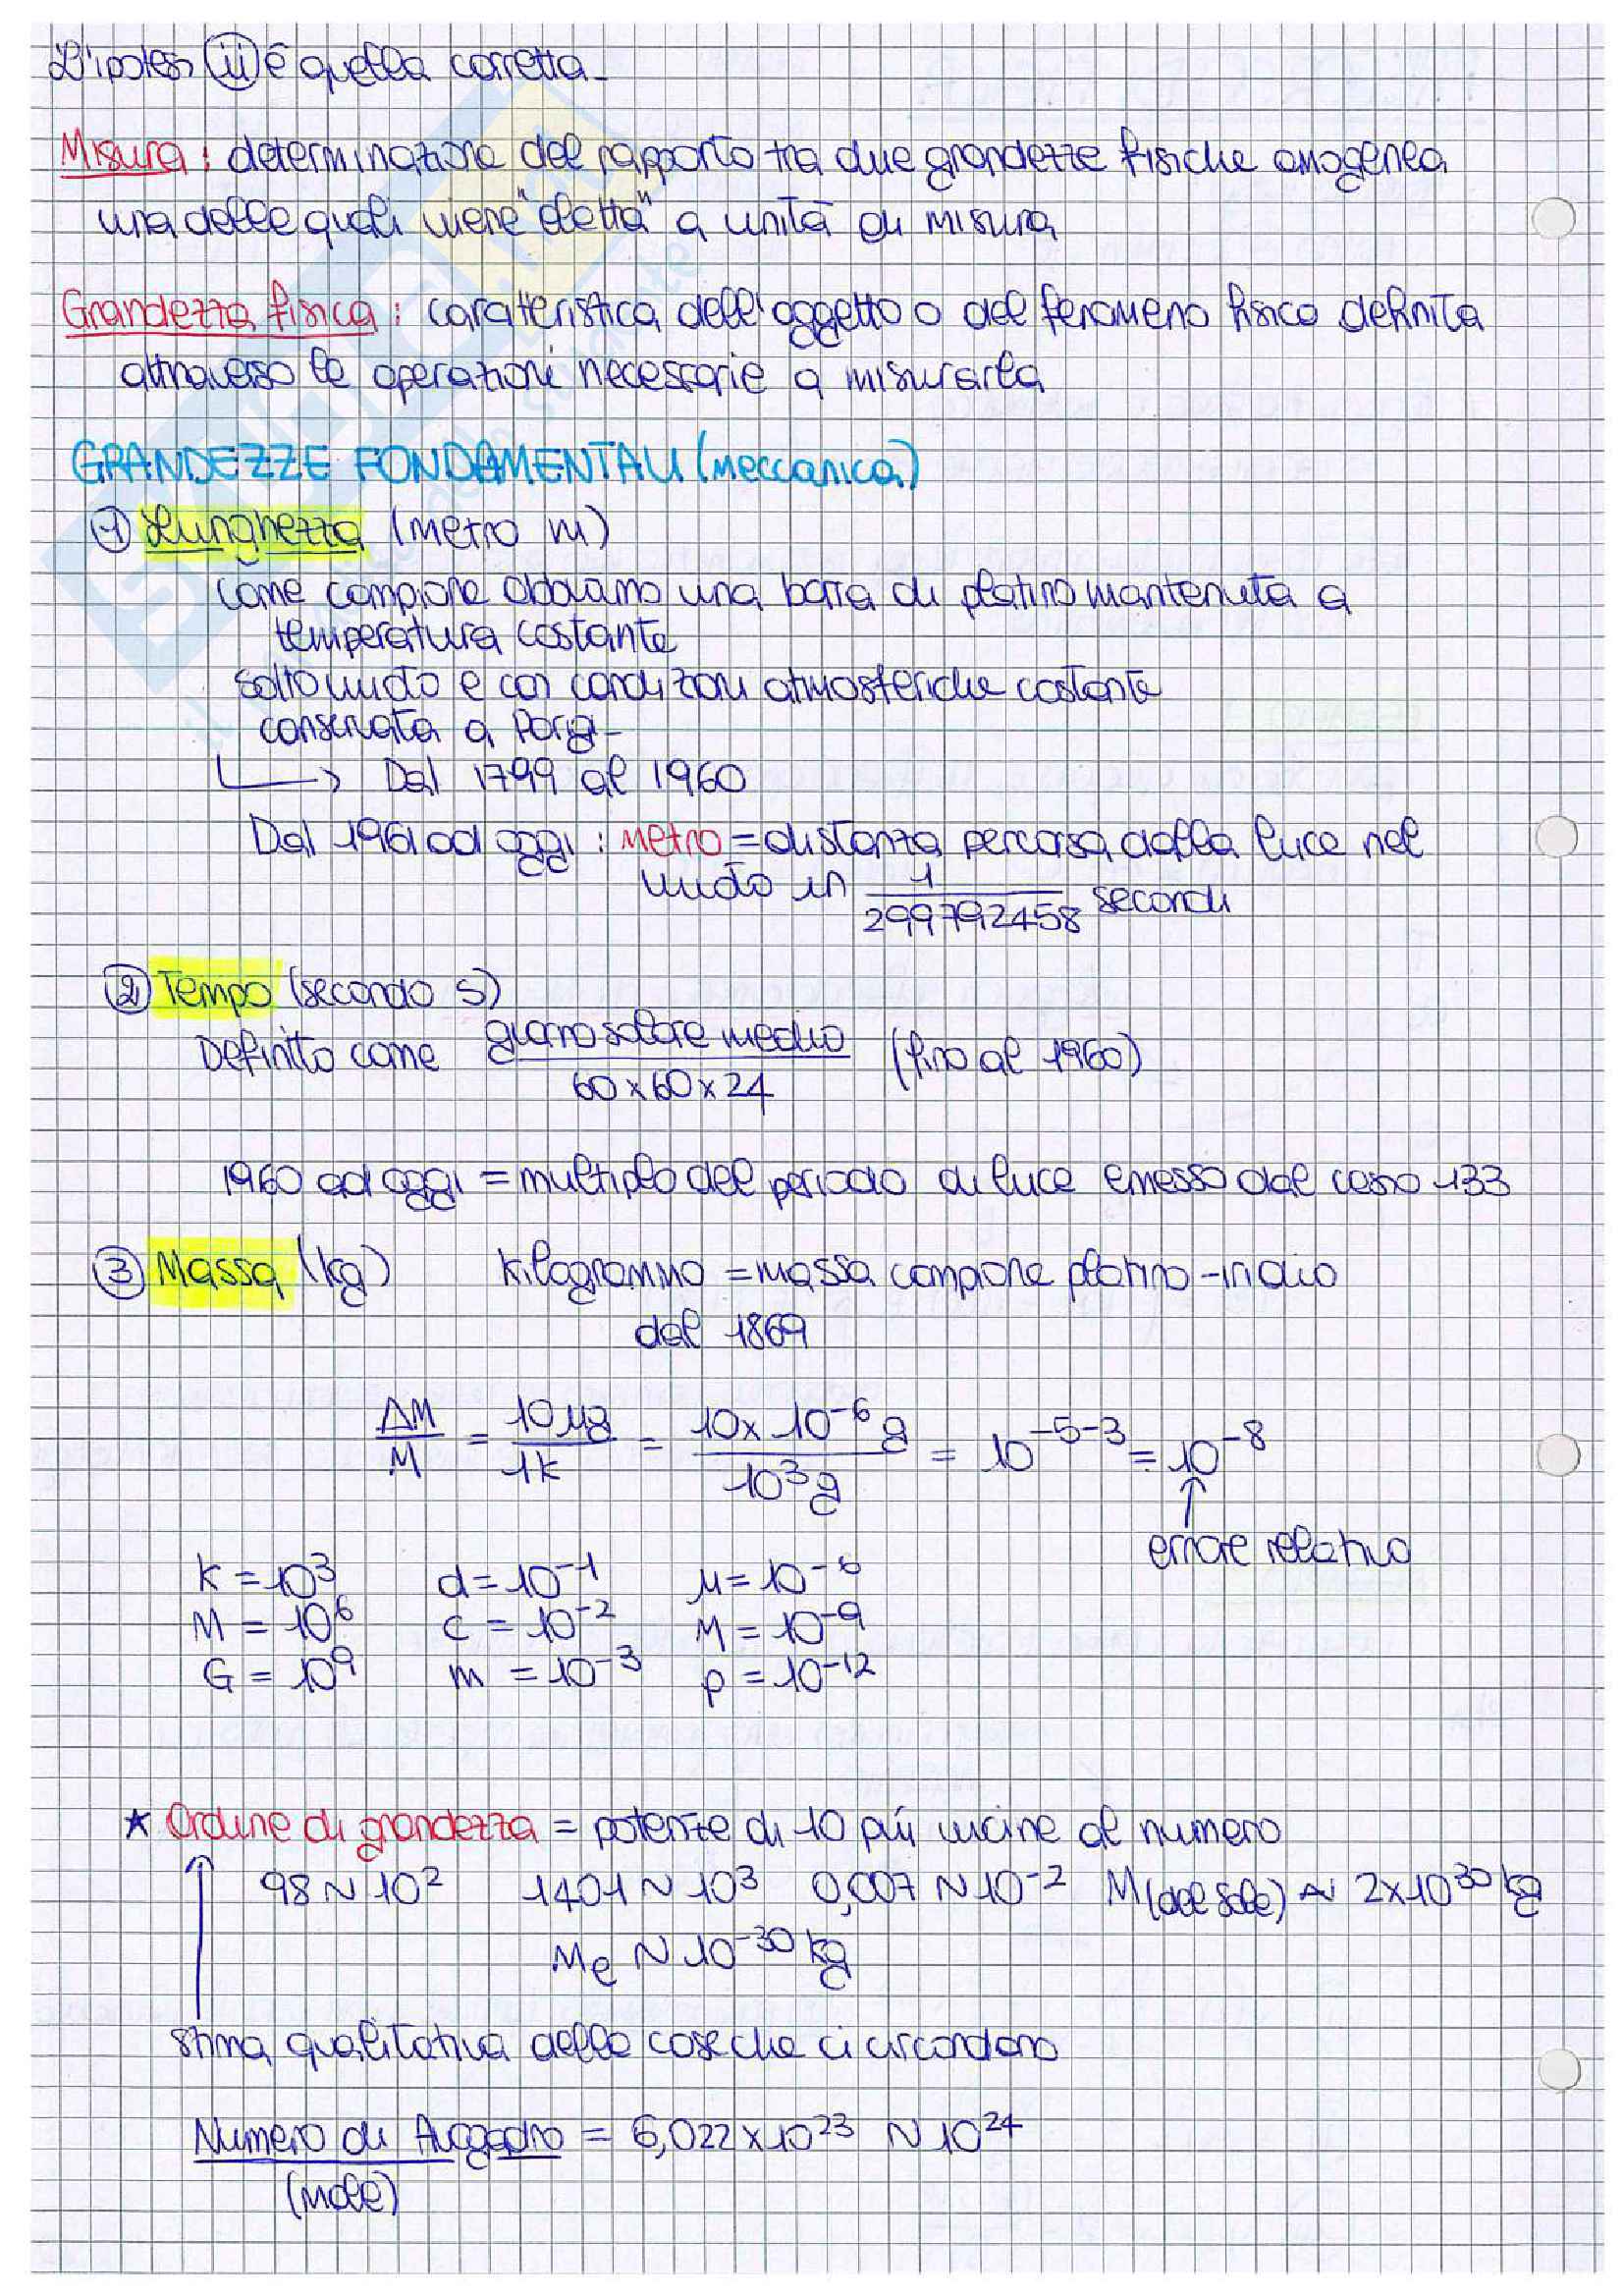 L'ipotesi (ii) è quella corretta.
Misura: determinazione del rapporto tra due grandezze fisiche omogenea
una delle quali viene "eletta" a unità di misura
Grandezza fisica: caratteristica dell'oggetto o del fenomeno fisico definita
attraverso le operazioni necessarie a misurarla
GRANDEZZE FONDAMENTALI (meccanica)
① Lunghezza (metro m)
Come campione abbiamo una barra di platino mantenuta a
temperatura costante
sotto vuoto e con condizioni atmosferiche costante
conservata a Parigi-
Dal 1799 al 1960
Dal 1961 ad oggi: metro = distanza percorsa dalla luce nel
vuoto in 1/299792458 secondi
② Tempo (secondo s)
Definito come giorno solare medio / 60x60x24 (fino al 1960)
1960 ad oggi = multiplo del periodo di luce emesso dal cesio 133
③ Massa (kg) kilogrammo = massa campione platino-iridio
dal 1869
ΔM/M = 10 μg/1k = 10x10⁻⁶g/10³g = 10⁻⁵⁻³ = 10⁻⁸
errore relativo
k = 10³ d = 10⁻¹ μ = 10⁻⁶
M = 10⁶ c = 10⁻² M = 10⁻⁹
G = 10⁹ m = 10⁻³ p = 10⁻¹²
★ Ordine di grandezza = potenze di 10 più vicine al numero
98 ~ 10² 1401 ~ 10³ 0,007 ~ 10⁻² M(del sole) ~ 2x10³⁰ kg
Me ~ 10⁻³⁰ kg
stima qualitativa delle cose che ci circondano
Numero di Avogadro = 6,022x10²³ ~ 10²⁴
(mole)